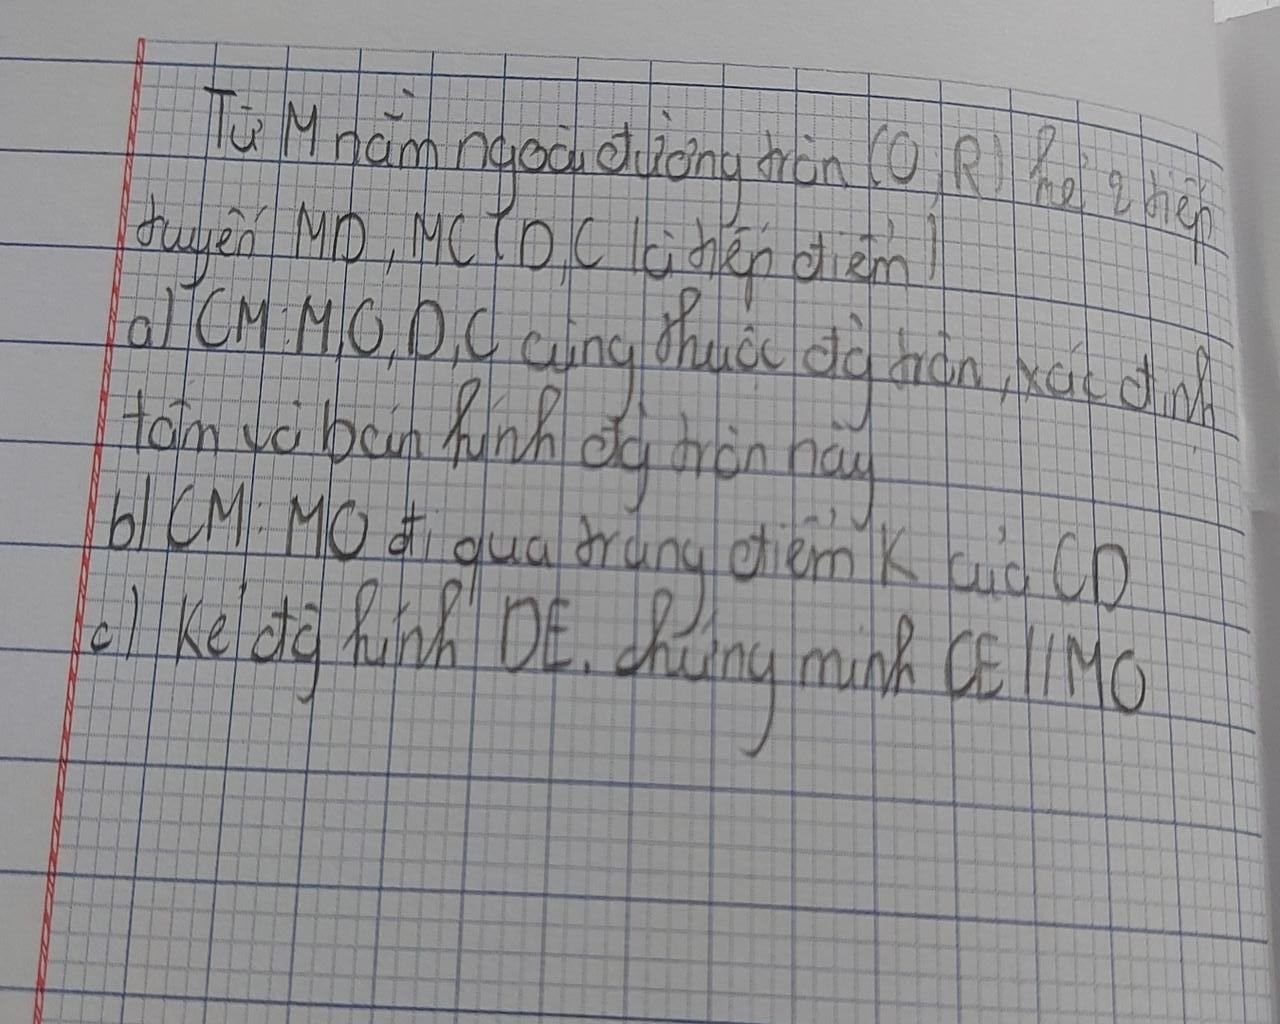 Từ M nằm ngoài đường tròn (O,R) kẻ 2 tiếp
tuyến MD, MC (D,C là tiếp điểm)
a) CM: M,O,D,C cùng thuộc đg tròn, xác định
tâm và bán kính đg tròn này
b) CM: MO đi qua trung điểm K của CD
c) Kẻ đg kính DE. chứng minh CE//MO